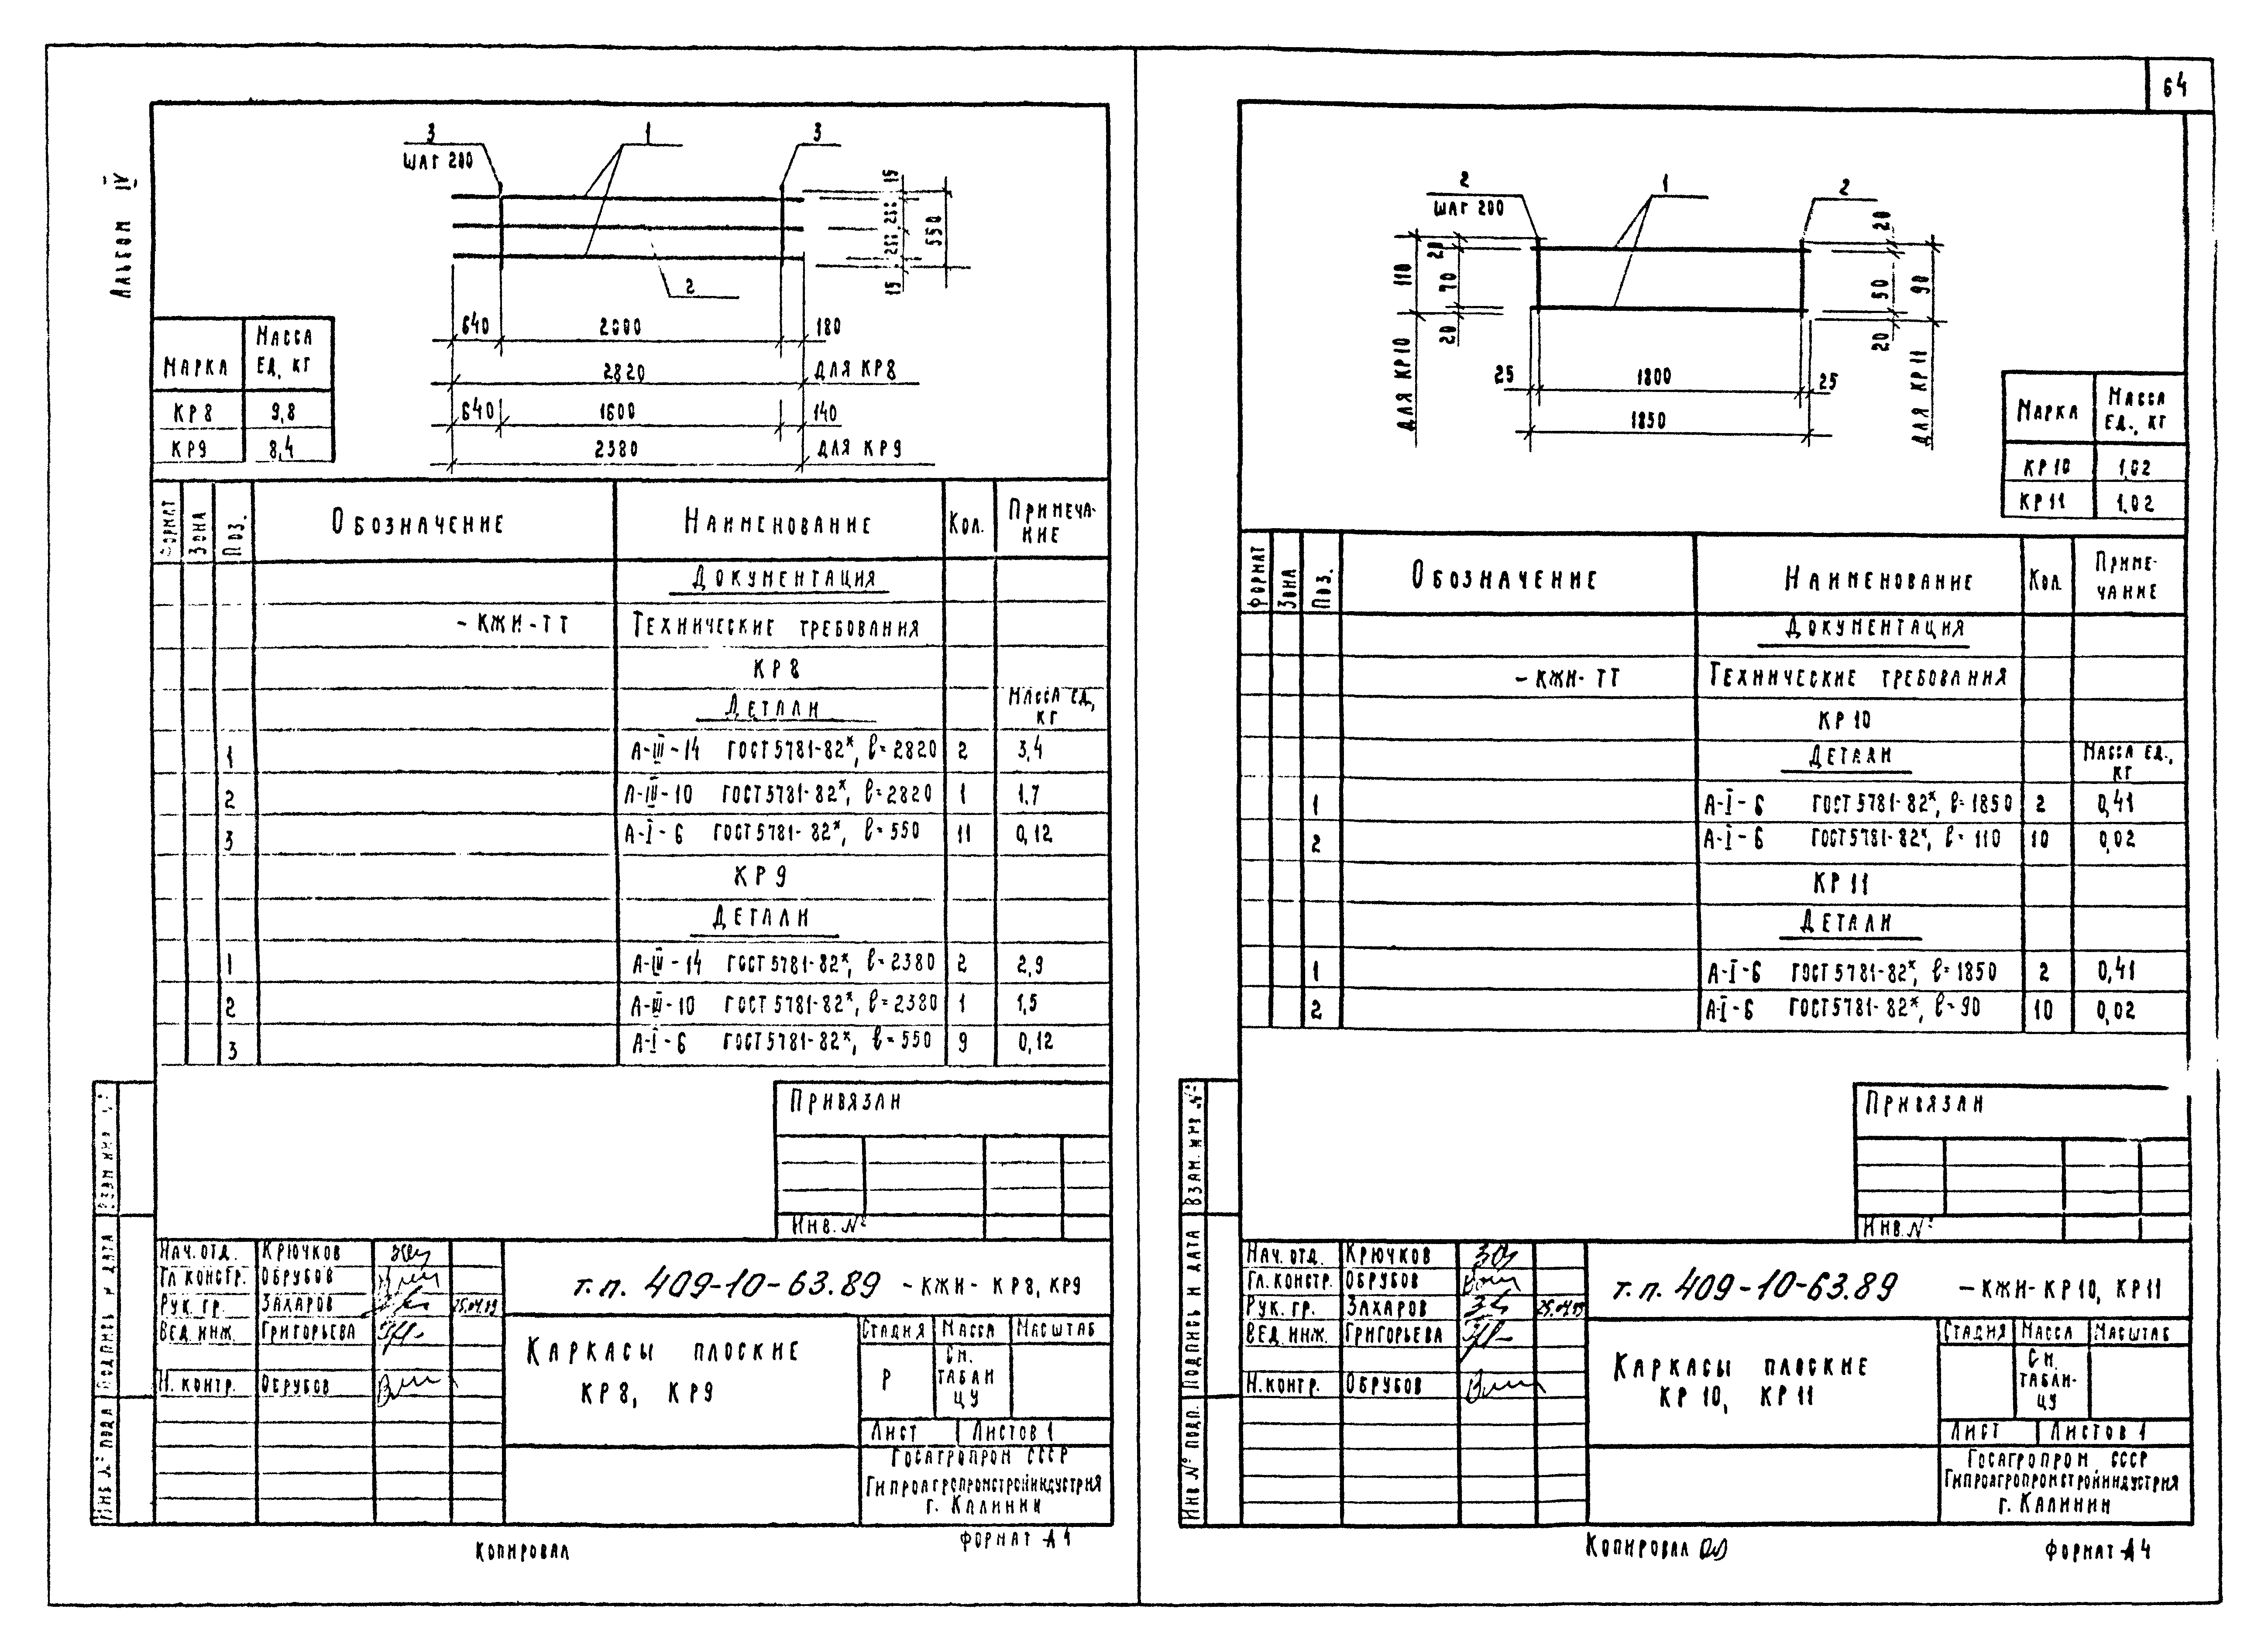 64
Альбом IV
3
ШАГ 200
1
3
2
15
15
550
640
2000
180
2820
ДЛЯ КР8
640
1600
140
2380
ДЛЯ КР9
Марка Масса ед, кг
КР8 9,8
КР9 8,4
Формат Зона Поз. Обозначение Наименование Кол. Примеча-
ние
Документация
-КЖИ-ТТ Технические требования
КР8
Детали Масса ед,
кг
1 А-III-14 ГОСТ 5781-82*, ℓ=2820 2 3,4
2 А-III-10 ГОСТ 5781-82*, ℓ=2820 1 1.7
3 А-I-6 ГОСТ 5781-82*, ℓ=550 11 0,12
КР9
Детали
1 А-III-14 ГОСТ 5781-82*, ℓ=2380 2 2,9
2 А-III-10 ГОСТ 5781-82*, ℓ=2380 1 1,5
3 А-I-6 ГОСТ 5781-82*, ℓ=550 9 0,12
Привязан
Инв. №
Взам инв №
Подпись и дата
Инв № подл
Нач. отд. Крючков
Гл констр. Обрубов
Рук. гр. Захаров 25.04.89
Вед. инж. Григорьева
Н. контр. Обрубов
т.п. 409-10-63.89 -КЖИ- КР8, КР9
Каркасы плоские
КР8, КР9
Стадия Масса Масштаб
Р См.
табли
цу
Лист Листов 1
Госагропром СССР
Гипроагропромстройиндустрия
г. Калинин
Копировал
Формат А4
2
ШАГ 200
1
2
110
20
70
20
ДЛЯ КР10
20
50
20
90
ДЛЯ КР11
25
1800
25
1850
Марка Масса ед., кг
КР10 1,02
КР11 1,02
Формат Зона Поз. Обозначение Наименование Кол. Приме-
чание
Документация
-КЖИ-ТТ Технические требования
КР10
Детали Масса ед.,
кг
1 А-I-6 ГОСТ 5781-82*, ℓ=1850 2 0,41
2 А-I-6 ГОСТ 5781-82*, ℓ=110 10 0,02
КР11
Детали
1 А-I-6 ГОСТ 5781-82*, ℓ=1850 2 0,41
2 А-I-6 ГОСТ 5781-82*, ℓ=90 10 0,02
Привязан
Инв. №
Взам. инв №
Подпись и дата
Инв № подп.
Нач. отд. Крючков
Гл. констр. Обрубов
Рук. гр. Захаров 25.04.89
Вед. инж. Григорьева
Н. контр. Обрубов
т.п. 409-10-63.89 -КЖИ-КР10, КР11
Каркасы плоские
КР10, КР11
Стадия Масса Масштаб
См.
табли-
цу
Лист Листов 1
Госагропром СССР
Гипроагропромстройиндустрия
г. Калинин
Копировал
Формат А4